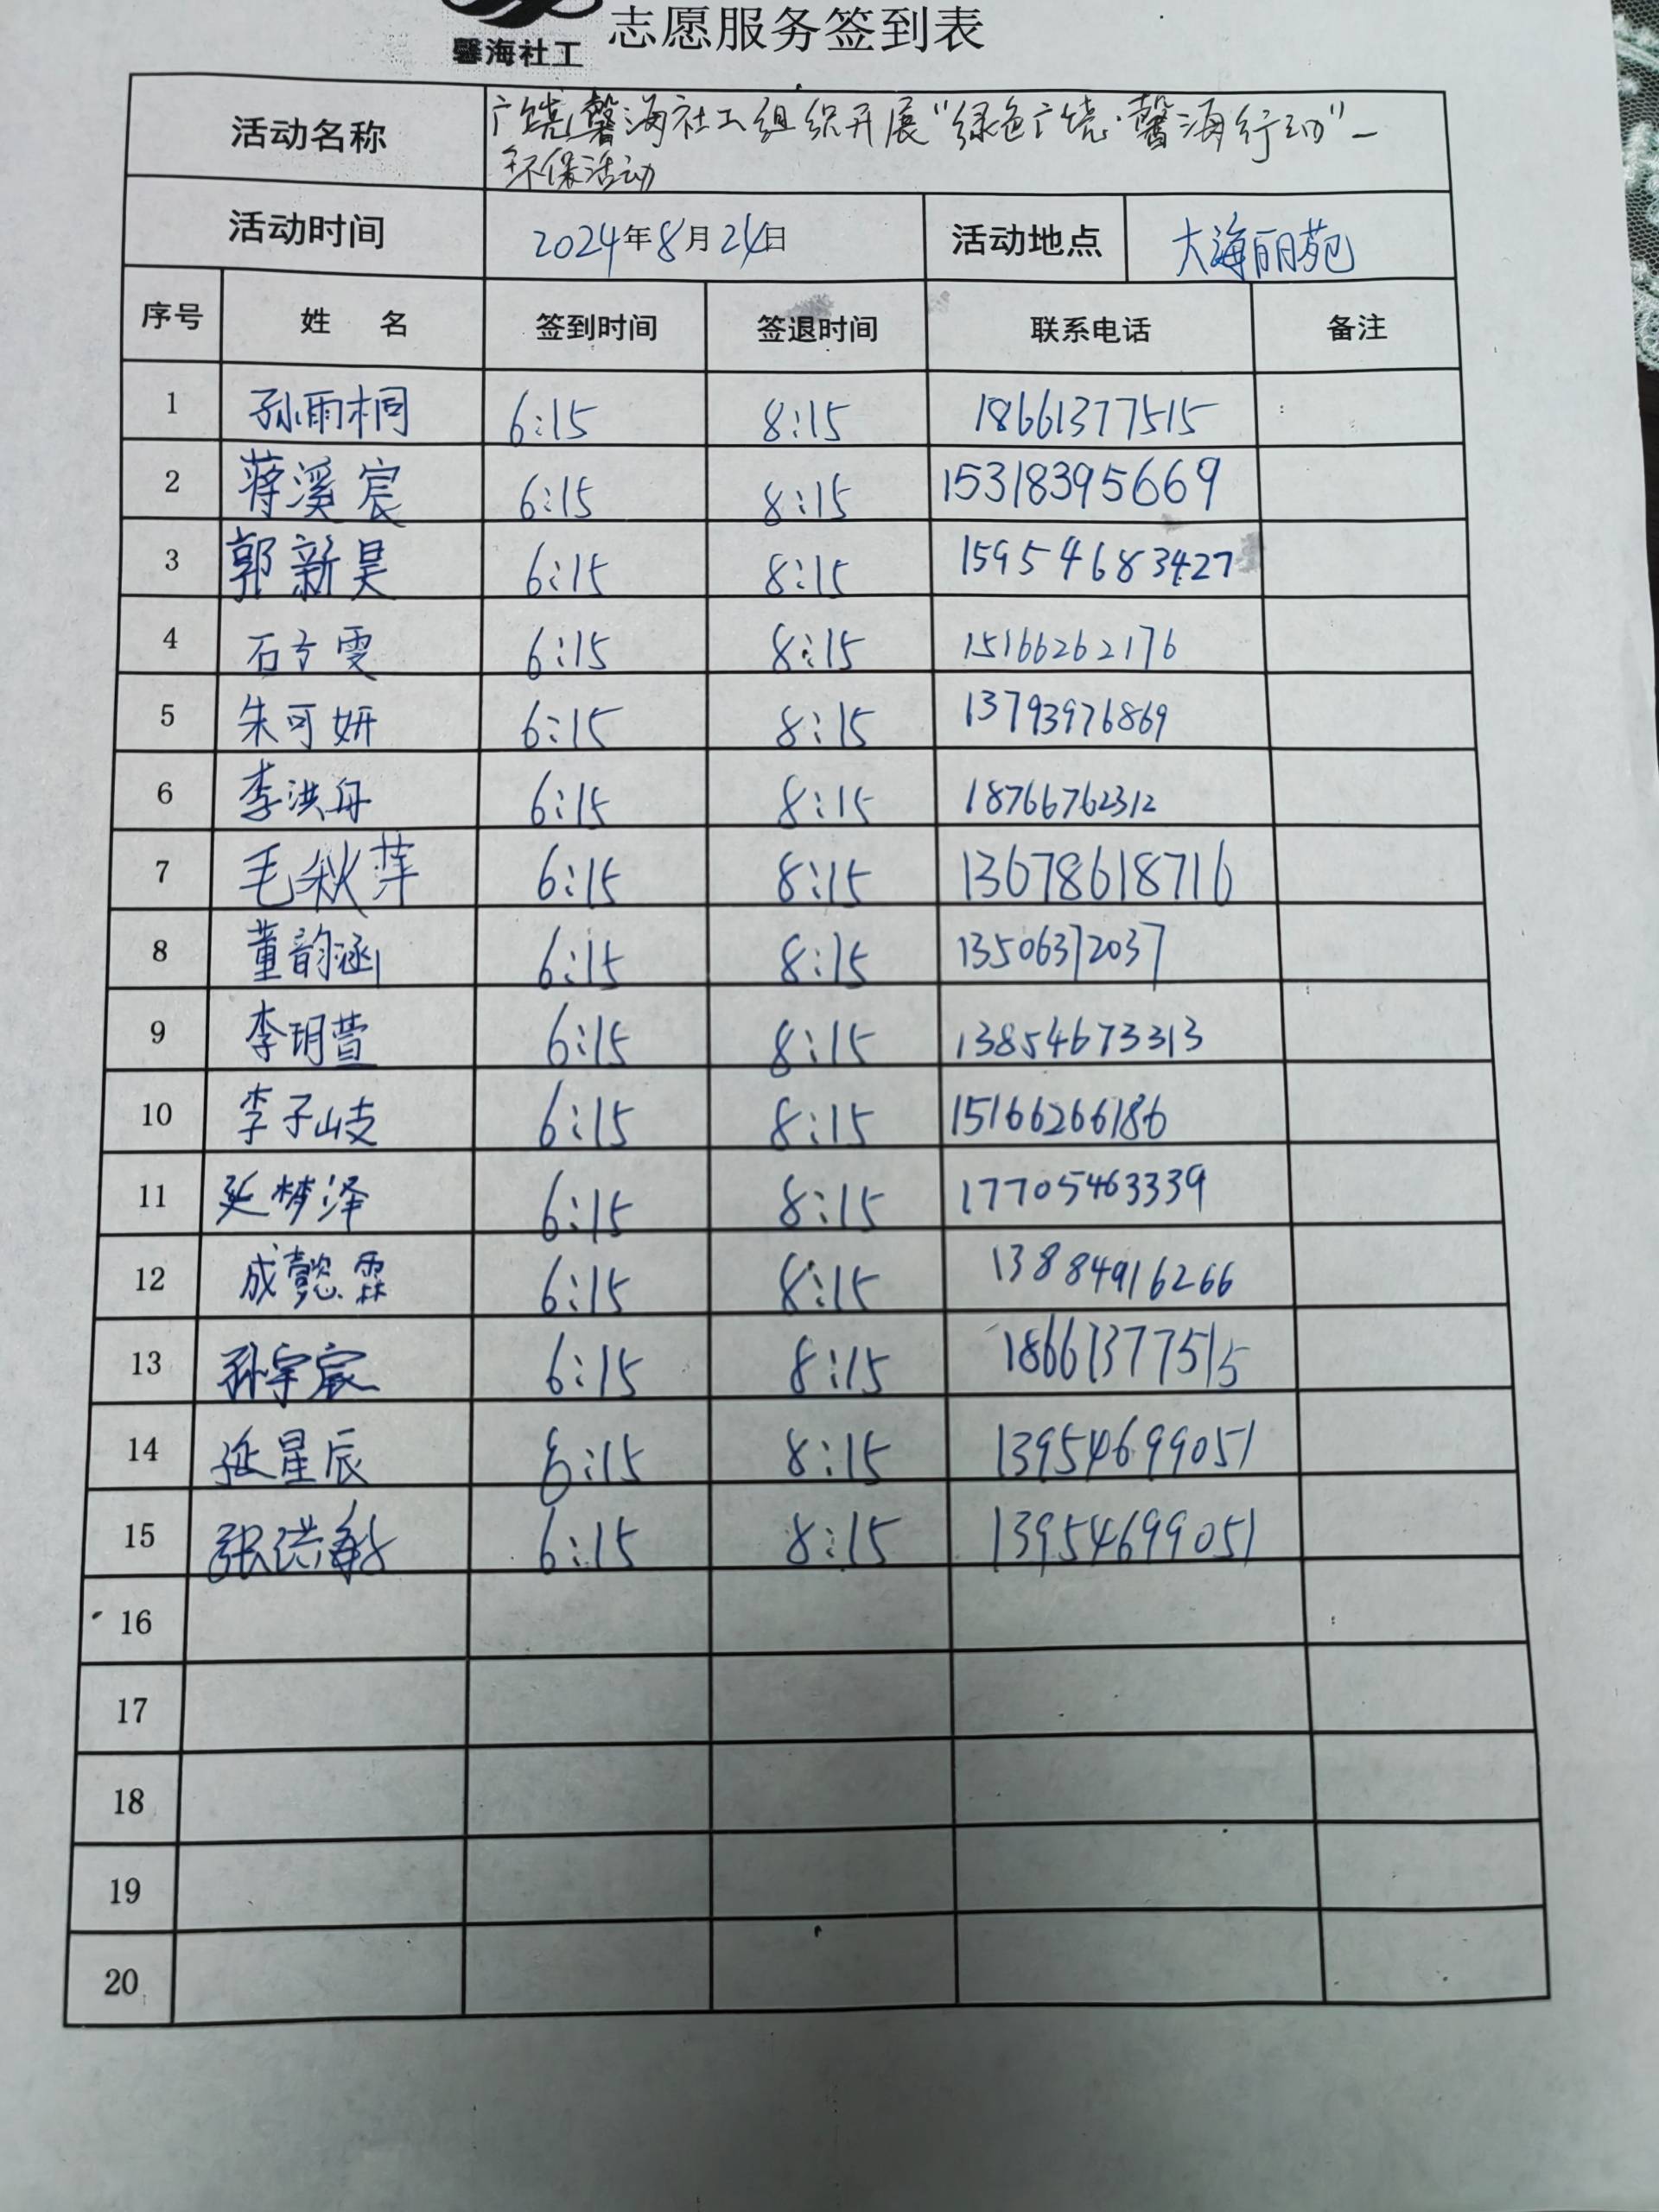 馨海社工 志愿服务签到表
活动名称 广饶馨海社工组织开展“绿色广饶·馨海行动”—
环保活动
活动时间 2024年8月24日 活动地点 大海丽苑
序号 姓 名 签到时间 签退时间 联系电话 备注
1 孙雨桐 6:15 8:15 18661377515
2 蒋溪宸 6:15 8:15 15318395669
3 郭新昊 6:15 8:15 15954683427
4 石方雯 6:15 8:15 15166262176
5 朱可妍 6:15 8:15 13793976869
6 李洪舟 6:15 8:15 18766762312
7 毛秋萍 6:15 8:15 13678618716
8 董韵涵 6:15 8:15 13506372037
9 李玥萱 6:15 8:15 13854673313
10 李子岐 6:15 8:15 15166266186
11 延梦泽 6:15 8:15 17705463339
12 成懿霖 6:15 8:15 13884916266
13 孙宇宸 6:15 8:15 18661377515
14 延星辰 6:15 8:15 13954699051
15 张洪敏 6:15 8:15 13954699051
16
17
18
19
20